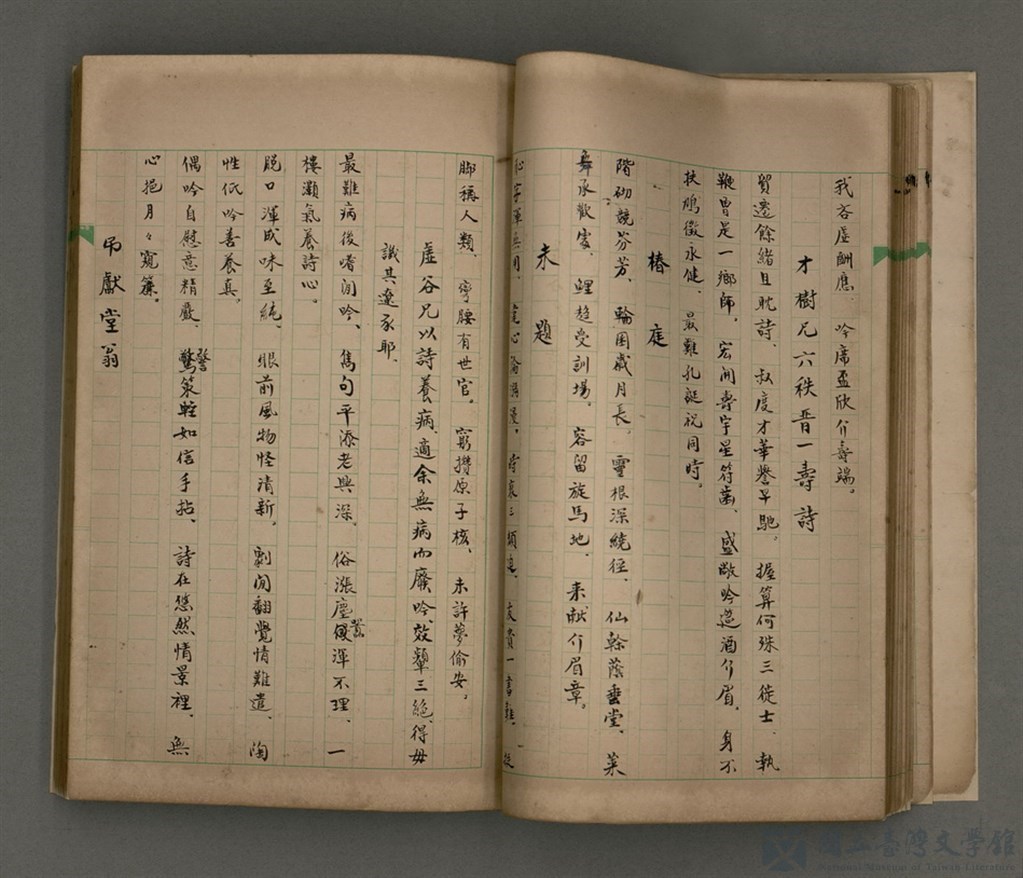 我吝虛酬應、吟席盃欣介壽端。
才樹兄六秩晋一壽詩
貿遷餘緒且耽詩、叔度才華譽早馳。握算何殊三徙士、執
鞭曾是一鄉師。宏開壽宇星符歲、盛敞吟筵酒介眉。身不
扶鳩徵永健、最難孔誕祝同時。
椿庭
階砌競芬芳、輪囷歲月長。靈根深繞徑、仙幹蔭垂堂。萊
舞承歡處、鯉趨受訓場。容留旋馬地、来献介眉章。
未題
脚稱人類、穹腰有世官。窮攢原子核、未許夢偷安。
虛谷兄以詩養病、適余無病而廢吟、效顰三絕、得毋
譏其邃承耶、
最難病後嗜閒吟、雋句平添老興深。俗漲塵囂渾不理、一
樓灝氣養詩心。
脫口渾成味至純、眼前風物怪清新。剩閒翻覺情難遣、陶
性低吟善養真。
偶吟自慰意精嚴、警策輕如信手拈、詩在悠然情景裡、無
心抱月々窺簾。
吊獻堂翁
國立臺灣文學館
National Museum of Taiwan Literature